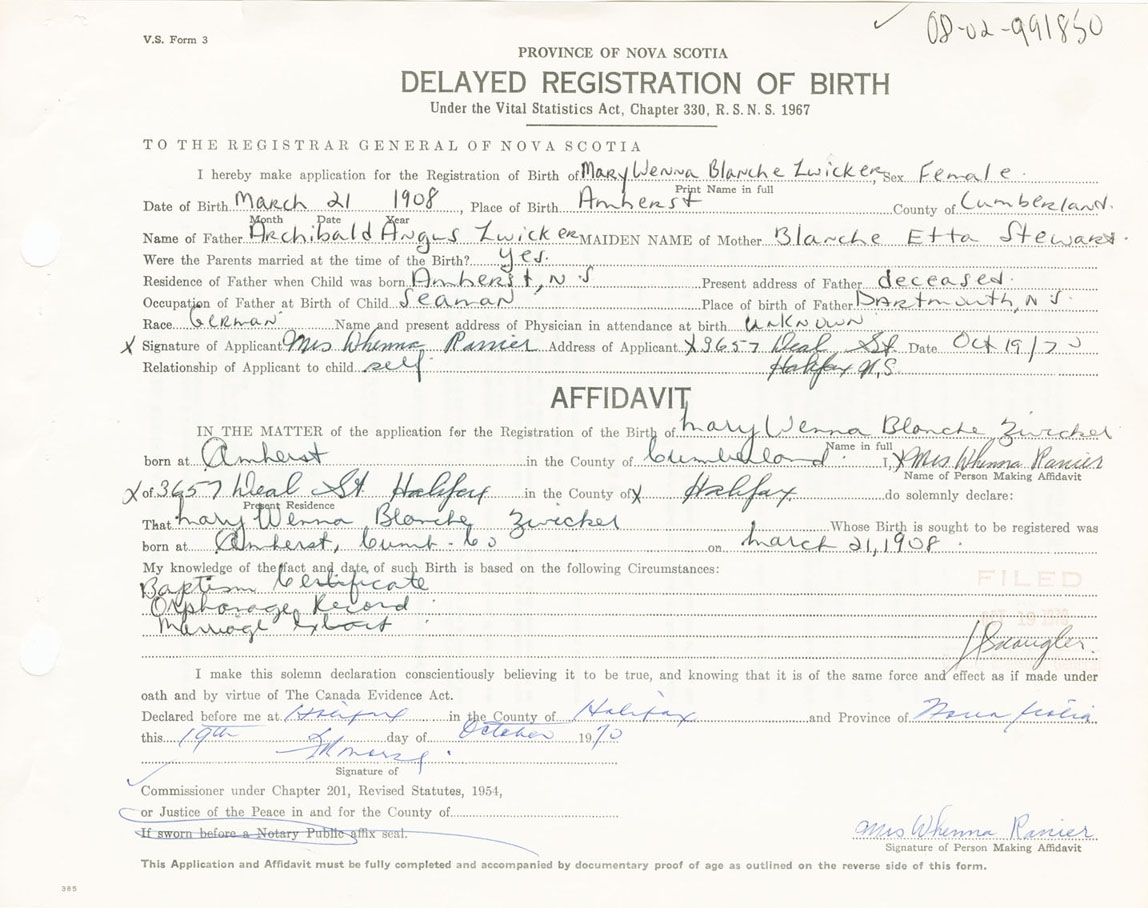 08-02-991850
V.S. Form 3
PROVINCE OF NOVA SCOTIA
DELAYED REGISTRATION OF BIRTH
Under the Vital Statistics Act, Chapter 330, R.S.N.S. 1967
TO THE REGISTRAR GENERAL OF NOVA SCOTIA
I hereby make application for the Registration of Birth of Mary Wenna Blanche Zwicker Sex Female
Print Name in full
Date of Birth March 21 1908, Place of Birth Amherst County of Cumberland.
Month Date Year
Name of Father Archibald Angus Zwicker MAIDEN NAME of Mother Blanche Etta Steward
Were the Parents married at the time of the Birth? yes.
Residence of Father when Child was born Amherst, NS Present address of Father deceased.
Occupation of Father at Birth of Child Seaman Place of birth of Father Dartmouth, NS.
Race German Name and present address of Physician in attendance at birth unknown
X Signature of Applicant Mrs Whenna Ranier Address of Applicant X 3657 Deal St Date Oct 19/70
Relationship of Applicant to child self Halifax N.S.
AFFIDAVIT
IN THE MATTER of the application for the Registration of the Birth of Mary Wenna Blanche Zwicker
Name in full
born at Amherst in the County of Cumberland. I, X Mrs Whenna Ranier
Name of Person Making Affidavit
X of 3657 Deal St Halifax in the County of X Halifax do solemnly declare:
Present Residence
That Mary Wenna Blanche Zwicker Whose Birth is sought to be registered was
born at Amherst, Cumb. Co on March 21, 1908.
My knowledge of the fact and date of such Birth is based on the following Circumstances:
Baptism Certificate
FILED
Orphanage Record
Marriage Extract
I make this solemn declaration conscientiously believing it to be true, and knowing that it is of the same force and effect as if made under
oath and by virtue of The Canada Evidence Act.
Declared before me at Halifax in the County of Halifax and Province of Nova Scotia
this 19th day of October 1970
Signature of
Commissioner under Chapter 201, Revised Statutes, 1954,
or Justice of the Peace in and for the County of
If sworn before a Notary Public affix seal.
Mrs Whenna Ranier
Signature of Person Making Affidavit
This Application and Affidavit must be fully completed and accompanied by documentary proof of age as outlined on the reverse side of this form.
385